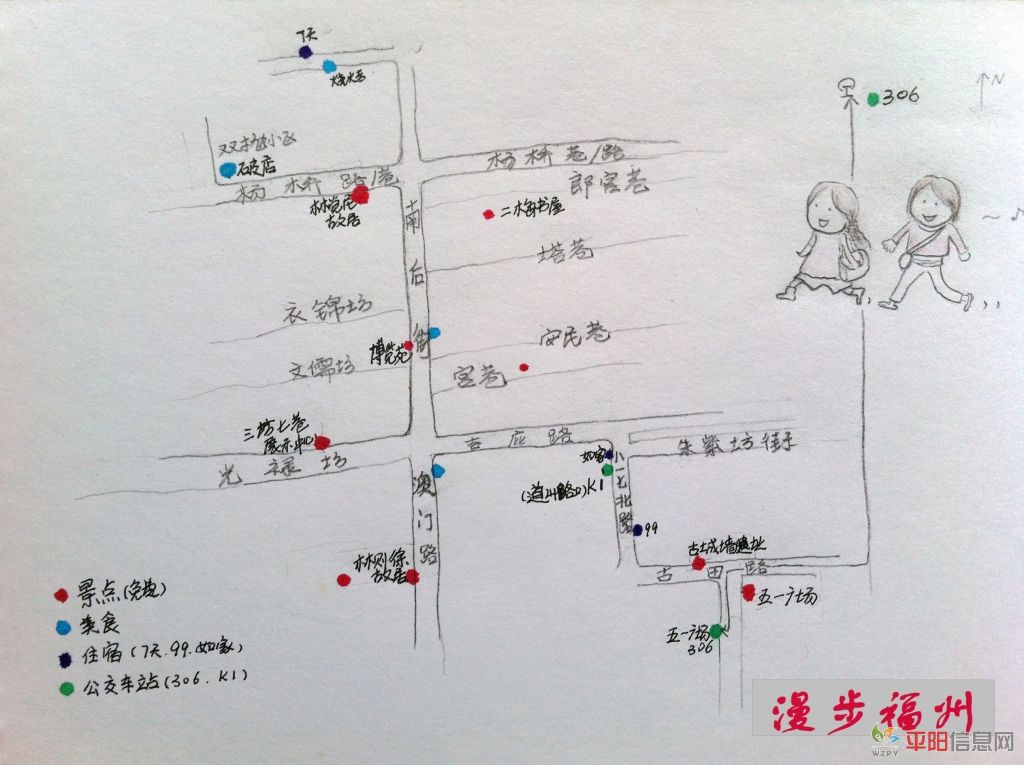 7天
烧烤
N
306
双坊小区
破店
杨桥路/巷
杨桥巷/路
郎官巷
林觉民
故居
南后街
二梅书屋
塔巷
衣锦坊
安民巷
博览苑
文儒坊
宫巷
三坊七巷
展示中心
光禄坊
吉庇路
朱紫坊街
如家
八一七北路
K1
澳门路
99
古城墙遗址
林则徐
故居
古田路
五一广场
五一广场
306
景点(免费)
美食
住宿(7天.99.如家)
公交车站(306.K1)
漫步福州
WZPY
平阳信息网